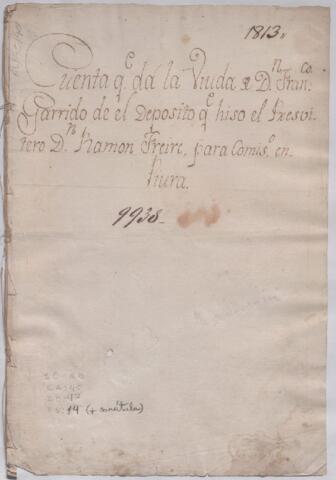 1813„
Cuenta q.e dá la Viuda de D.n Fran.co
Garrido de el Deposito q.e hiso el Presvi-
tero D.n Ramon Freire, para Comis.o en
Piura.
9938
F S: 14 (+ carátula)